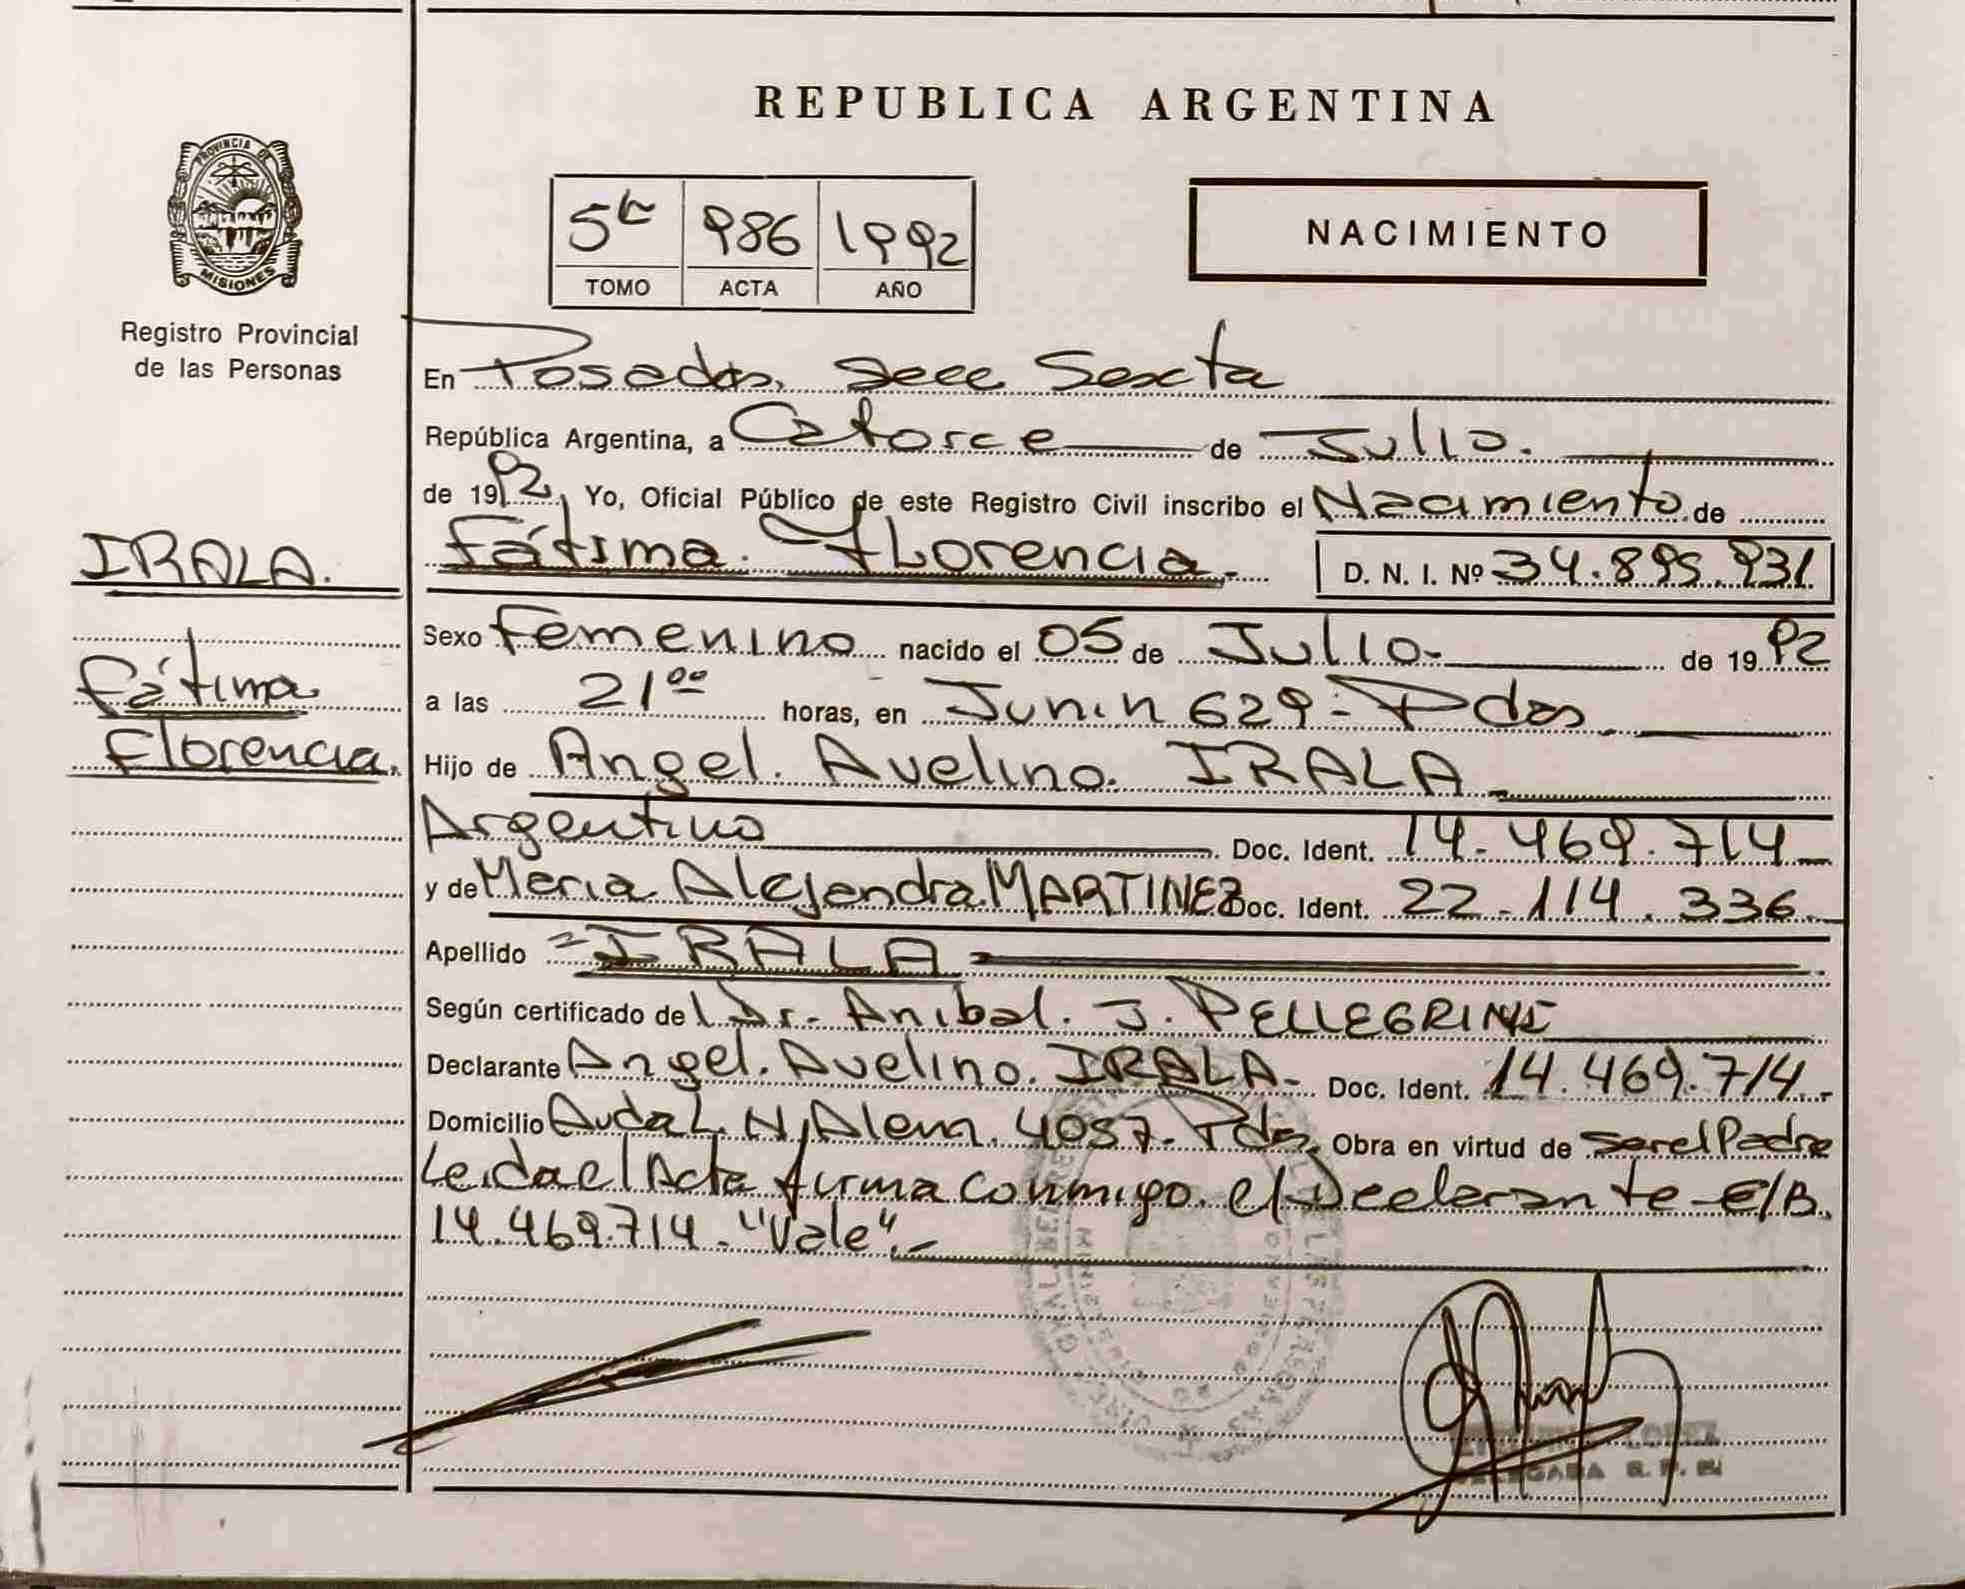 REPUBLICA ARGENTINA
PROVINCIA DE
MISIONES
Registro Provincial
de las Personas
5to 986 1992
TOMO ACTA AÑO
NACIMIENTO
En Posadas, Secc Sexta
República Argentina, a Catorce de Julio.
de 1992, Yo, Oficial Público de este Registro Civil inscribo el Nacimiento de
Fátima Florencia. D. N. I. Nº 34.895.931
IRALA.
Fátima
Florencia.
Sexo Femenino nacido el 05 de Julio- de 1992
a las 21 00 horas, en Junin 629- Pdas
Hijo de Angel. Avelino. IRALA
Argentino Doc. Ident. 14.469.714
y de Maria Alejandra MARTINEZ Doc. Ident. 22.114.336.
Apellido = IRALA =
Según certificado del Dr. Anibal. J. PELLEGRINI
Declarante Angel. Avelino. IRALA- Doc. Ident. 14.469.714.-
Domicilio Avda L. N. Alem. 4057- Pdas, Obra en virtud de ser el Padre
Leida el Acta firma conmigo el Declarante- E/B.
14.469.714- "Vale".-
LOPEZ
DELEGADA R. P.